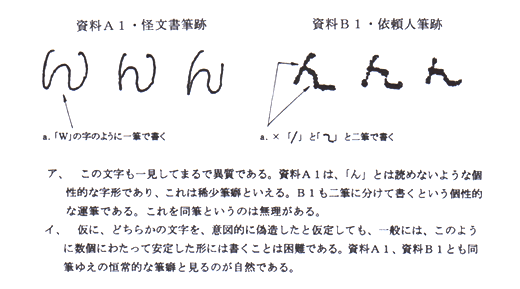 資料A1・怪文書筆跡　資料B1・依頼人筆跡
ん　ん　ん　ん　ん　ん
a.「W」の字のように一筆で書く　a. ×「/」と「て」と二筆で書く
ア、　この文字も一見してまるで異質である。資料A1は、「ん」とは読めないような個
性的な字形であり、これは稀少筆癖といえる。B1も二筆に分けて書くという個性的
な運筆である。これを同筆というのは無理がある。
イ、　仮に、どちらかの文字を、意図的に偽造したと仮定しても、一般には、このよう
に数個にわたって安定した形には書くことは困難である。資料A1、資料B1とも同
筆ゆえの恒常的な筆癖と見るのが自然である。